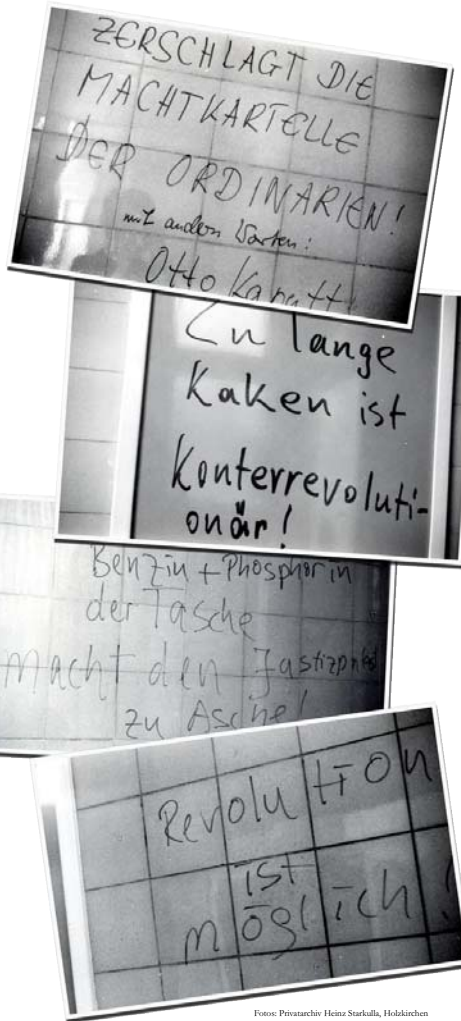 ZERSCHLAGT DIE
MACHTKARTELLE
DER ORDINARIEN!
mit andern Worten:
Otto
Zu lange
Kaken ist
Konterrevoluti-
onär!
Benzin + Phosphor in
der Tasche
macht den
zu Asche!
Revolution
ist
möglich!
Fotos: Privatarchiv Heinz Starkulla, Holzkirchen